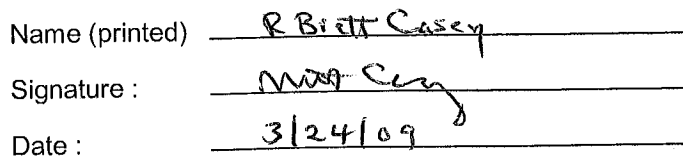 Name (printed) R Brett Casey
Signature :
Date : 3/24/09